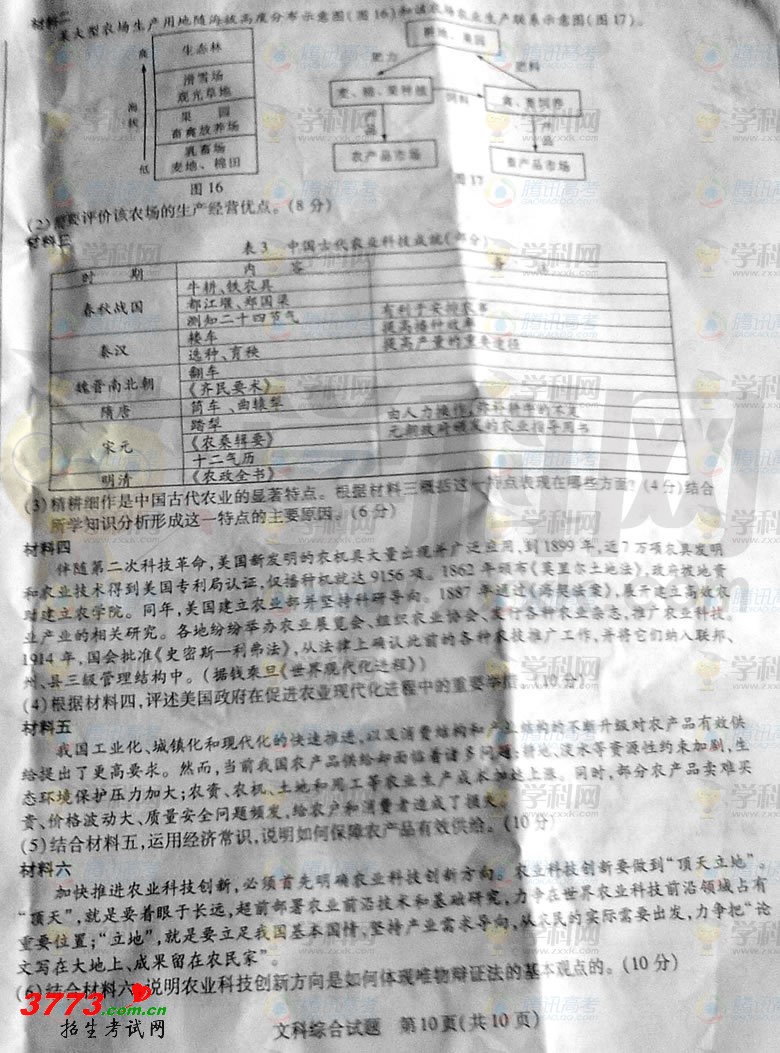 材料二
某大型农场生产用地随海拔高度分布示意图(图16)和该农场农业生产联系示意图(图17)。
高
海拔
低
生态林
滑雪场
观光草地
果 园
畜禽放养场
乳畜场
麦地、棉田
图16
耕地、果园
肥力
肥料
麦、棉、果种植
饲料
禽、畜饲养
产品
产品
农产品市场
畜产品市场
图17
(2)简要评价该农场的生产经营优点。(8分)
材料三
表3 中国古代农业科技成就(部分)
时 期 内 容 备 注
春秋战国
牛耕、铁农具
都江堰、郑国渠
测知二十四节气 有利于安排农事
秦汉
耧车 提高播种效率
选种、育秧 提高产量的重要途径
魏晋南北朝
翻车
《齐民要术》
隋唐 筒车、曲辕犁
宋元
踏犁 由人力操作,弥补耕牛的不足
《农桑辑要》 元朝政府颁发的农业指导用书
十二气历
明清 《农政全书》
(3)精耕细作是中国古代农业的显著特点。根据材料三概括这一特点表现在哪些方面?(4分)结合
所学知识分析形成这一特点的主要原因。(6分)
材料四
伴随第二次科技革命,美国新发明的农机具大量出现并广泛应用,到1899年,近7万项农具发明
和农业技术得到美国专利局认证,仅播种机就达9156项。1862年颁布《莫里尔土地法》,政府拨地资
助建立农学院。同年,美国建立农业部并坚持科研导向。1887年通过《海奇法案》,展开建立高效农
业产业的相关研究。各地纷纷举办农业展览会、组织农业协会、发行各种农业杂志,推广农业科技。
1914年,国会批准《史密斯—利弗法》,从法律上确认此前的各种农技推广工作,并将它们纳入联邦、
州、县三级管理结构中。(据钱乘旦《世界现代化进程》)
(4)根据材料四,评述美国政府在促进农业现代化进程中的重要举措。(10分)
材料五
我国工业化、城镇化和现代化的快速推进,以及消费结构和产业结构的不断升级对农产品有效供
给提出了更高要求。然而,当前我国农产品供给却面临着诸多问题:耕地、淡水等资源性约束加剧,生
态环境保护压力加大;农资、农机、土地和用工等农业生产成本加速上涨。同时,部分农产品卖难买
贵、价格波动大、质量安全问题频发,给农户和消费者造成了损失。
(5)结合材料五,运用经济常识,说明如何保障农产品有效供给。(10分)
材料六
加快推进农业科技创新,必须首先明确农业科技创新方向。农业科技创新要做到“顶天立地”。
“顶天”,就是要着眼于长远,超前部署农业前沿技术和基础研究,力争在世界农业科技前沿领域占有
重要位置;“立地”,就是要立足我国基本国情,坚持产业需求导向,从农民的实际需要出发,力争把“论
文写在大地上、成果留在农民家”。
(6)结合材料六,说明农业科技创新方向是如何体现唯物辩证法的基本观点的。(10分)
文科综合试题 第10页(共10页)
3773.com.cn
招生考试网
学科网
www.zxxk.com
腾讯高考